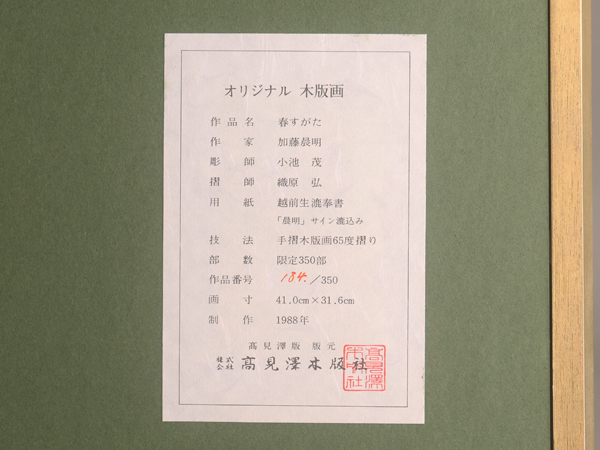 オリジナル 木版画
作品名 春すがた
作家 加藤晨明
彫師 小池 茂
摺師 織原 弘
用紙 越前生漉奉書
「晨明」サイン漉込み
技法 手摺木版画65度摺り
部数 限定350部
作品番号 184./350
画寸 41.0cm×31.6cm
制作 1988年
高見澤版 版元
株式会社 高見澤木版社